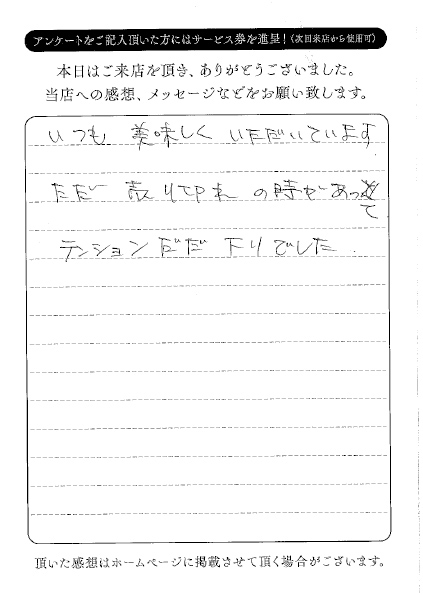 アンケートをご記入頂いた方にはサービス券を進呈！（次回来店から使用可）
本日はご来店を頂き、ありがとうございました。
当店への感想、メッセージなどをお願い致します。
いつも 美味しく いただいています
ただ 売り切れ の時があって
テンションだだ下りでした.
頂いた感想はホームページに掲載させて頂く場合がございます。